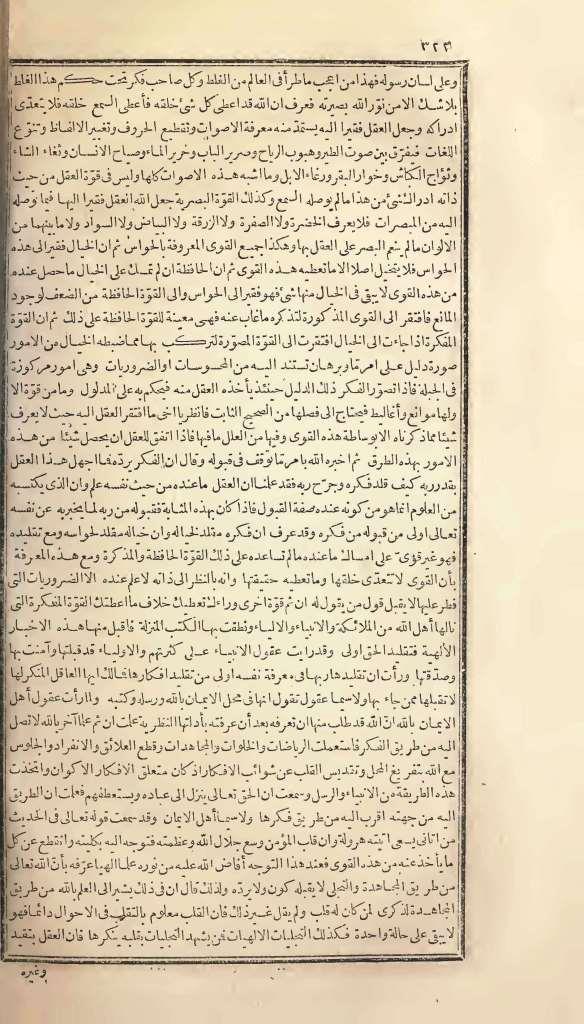 ٣٢٣
وعلى لسان رسوله فهذا من اعجب ما طرأ فى العالم من الغلط وكل صاحب فكر تحت حكم هذا الغلط
بلا شك الا من نوّر الله بصيرته فعرف ان الله قد اعطى كل شئ خلقه فأعطى السمع خلقه فلا يتعدّى
ادراكه وجعل العقل فقيرا اليه يستمدّ منه معرفة الاصوات وتقطيع الحروف وتغيير الالفاظ وتنوّع
اللغات فيفرّق بين صوت الطير وهبوب الرياح وصرير الباب وخرير الماء وصياح الانسان وثغاء الشاء
وثؤاج الكباش وخوار البقر ورغاء الابل وما أشبه هذه الاصوات كلها وليس فى قوّة العقل من حيث
ذاته ادراك شئ من هذا ما لم يوصله السمع وكذلك القوّة البصرية جعل الله العقل فقيرا اليها فيما توصله
اليه من المبصرات فلا يعرف الخضرة ولا الصفرة ولا الزرقة ولا البياض ولا السواد ولا ما بينهما من
الالوان ما لم ينعم البصر على العقل بها وهكذا جميع القوى المعروفة بالحواس ثم ان الخيال فقير الى هذه
الحواس فلا يتخيل اصلا الا ما تعطيه هذه القوى ثم ان الحافظة ان لم تمسك على الخيال ما حصل عنده
من هذه القوى لا يبقى فى الخيال منها شئ فهو فقير الى الحواس والى القوّة الحافظة من الضعف لوجود
المانع فافتقر الى القوى المذكورة لتذكره ما غاب عنه فهى معينة للقوة الحافظة على ذلك ثم ان القوّة
المفكرة اذا جاءت الى الخيال افتقرت الى القوّة المصوّرة لتركب بها مما ضبطه الخيال من الامور
صورة دليل على امر تما وبرهان تستند اليه من المحسوسات او الضروريات وهى امور مركوزة
فى الجبلة فاذا تصوّر الفكر ذلك الدليل حينئذ يأخذه العقل منه فيحكم به على المدلول وما من قوّة الا
ولها موانع وأغاليط فيحتاج الى فصلها من الصحيح الثابت فانظر يا اخى ما افقر العقل اليه حيث لا يعرف
شيئا مما ذكرناه الا بوساطة هذه القوى وفيها من العلل ما فيها فاذا اتفق للعقل ان يحصل شيئا من هذه
الامور بهذه الطرق ثم اخبره الله بامر ما توقف فى قبوله وقال ان الفكر يردّه فما اجهل هذا العقل
بقدر ربه كيف قلد فكره وجرّح ربه فقد علمنا ان العقل ما عنده من حيث نفسه علم وان الذى يكتسبه
من العلوم انما هو من كونه عنده صفة القبول فاذا كان بهذه المثابة فقبوله من ربه لما يخبر به عن نفسه
تعالى اولى من قبوله من فكره وقد عرف ان فكره مقلد لخياله وان خياله مقلد لحواسه ومع تقليده
فهو غير قوىّ على امساك ما عنده ما لم تساعده على ذلك القوّة الحافظة والمذكرة ومع هذه المعرفة
بأن القوى لا تتعدّى خلقها وما تعطيه حقيقتها وانه بالنظر الى ذاته لا علم عنده الا الضروريات التى
فطر عليها لا يقبل قول من يقول له ان ثم قوّة اخرى وراءك تعطيك خلاف ما اعطتك القوّة المفكرة التى
نالها أهل الله من الملائكة والانبياء والاولياء ونطقت بها الكتب المنزلة فاقبل منها هذه الاخبار
الالهية فتقليد الحق اولى وقد رايت عقول الانبياء على كثرتهم والاولياء قد قبلتها وآمنت بها
وصدّقتها ورأت ان تقليدها ربها فى معرفة نفسه اولى من تقليد افكارها فمالك ايها العاقل المنكر لها
لا تقبلها ممن جاء بها ولا سيما عقول تقول انها فى محل الايمان بالله ورسله وكتبه ولما رأت عقول أهل
الايمان بالله انّ الله قد طلب منها ان تعرفه بعد أن عرفته بأدلتها النظرية علمت ان ثم علما آخر بالله لا تصل
اليه من طريق الفكر فاستعملت الرياضات والخلوات والمجاهدات وقطع العلائق والانفراد والجلوس
مع الله بتفريغ المحل وتقديس القلب عن شوائب الافكار اذ كان متعلق الافكار الاكوان واتخذت
هذه الطريقة من الانبياء والرسل وسمعت ان الحق تعالى ينزل الى عباده ويستعطفهم فعلمت ان الطريق
اليه من جهته اقرب اليه من طريق فكرها ولا سيما أهل الايمان وقد سمعت قوله تعالى فى الحديث
من اتانى يسعى اتيته هرولة وان قلب المؤمن وسع جلال الله وعظمته فتوجه اليه بكليته وانقطع عن كل
ما يأخذ عنه من هذه القوى فعند هذا التوجه أفاض الله عليه من نوره علما الهيا عرّفه بأنّ الله تعالى
من طريق المجاهدة والتجلى لا يقبله كون ولا يردّه ولذلك قال ان فى ذلك يشير الى العلم بالله من طريق
المجاهدة لذكرى لمن كان له قلب ولم يقل غير ذلك فان القلب معلوم بالتقلب فى الاحوال دائما فهو
لا يبقى على حالة واحدة فكذلك التجليات الالهيات فمن يشهد التجليات بقلبه ينكرها فان العقل يتقيد
وغيره